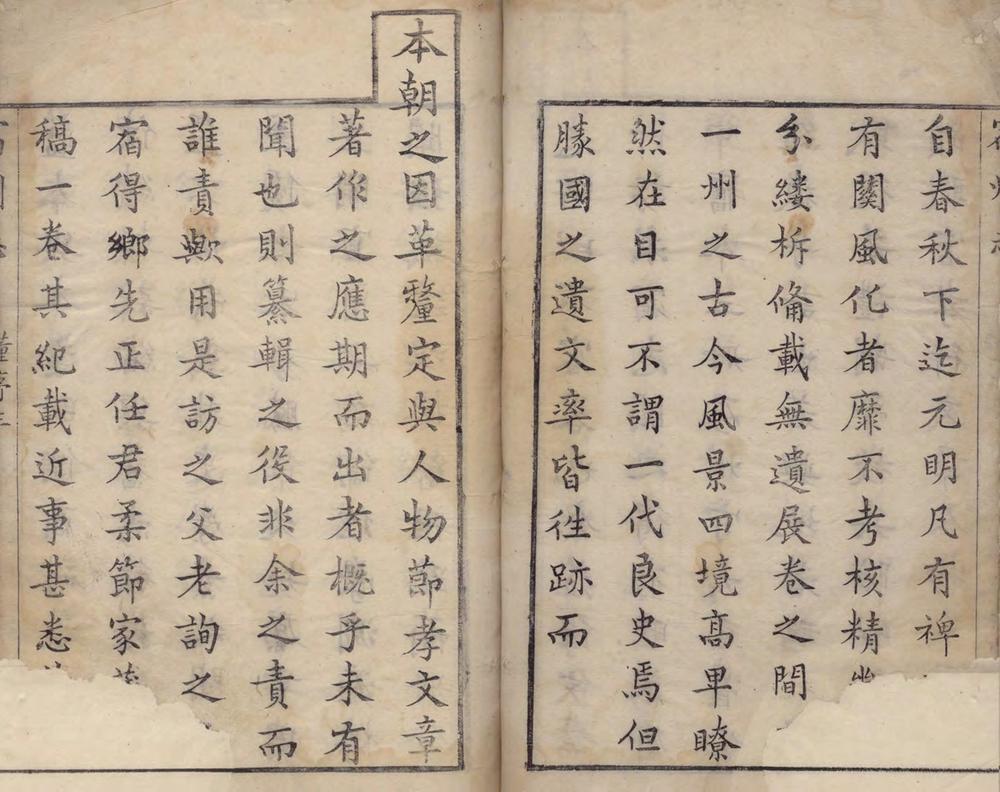 宿州志
自春秋下迄元明凡有裨
有關風化者靡不考核精
分縷柝俻載無遺展卷之間
一州之古今風景四境高卑瞭
然在目可不謂一代良史焉但
勝國之遺文率皆徃跡而
本朝之因革釐定與人物節孝文章
著作之應期而出者概乎未有
聞也則纂輯之役非余之責而
誰責歟用是訪之父老詢之
宿得鄉先正任君柔節家
稿一卷其紀載近事甚悉
董序